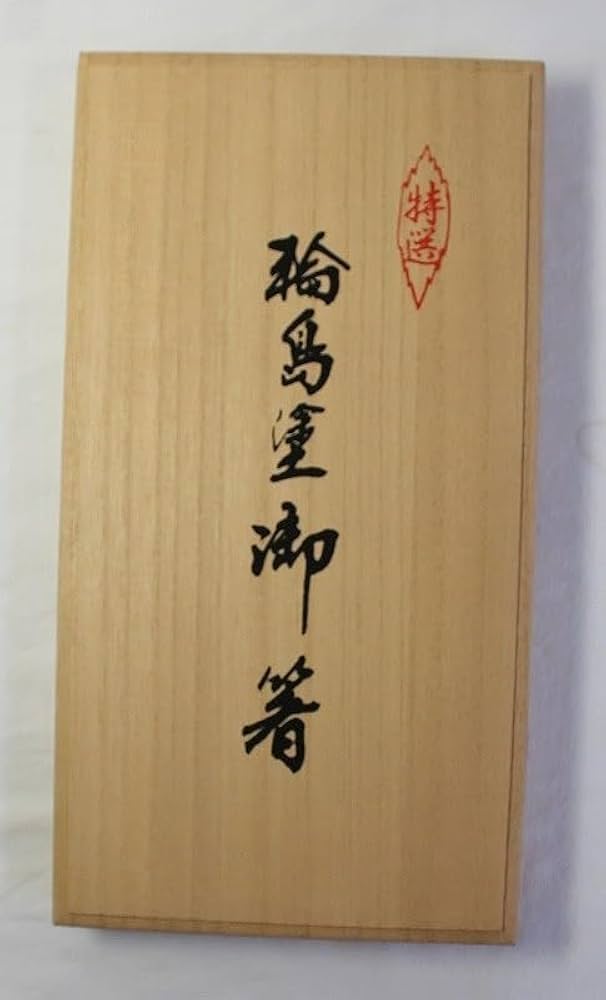 特選
輪島塗御箸